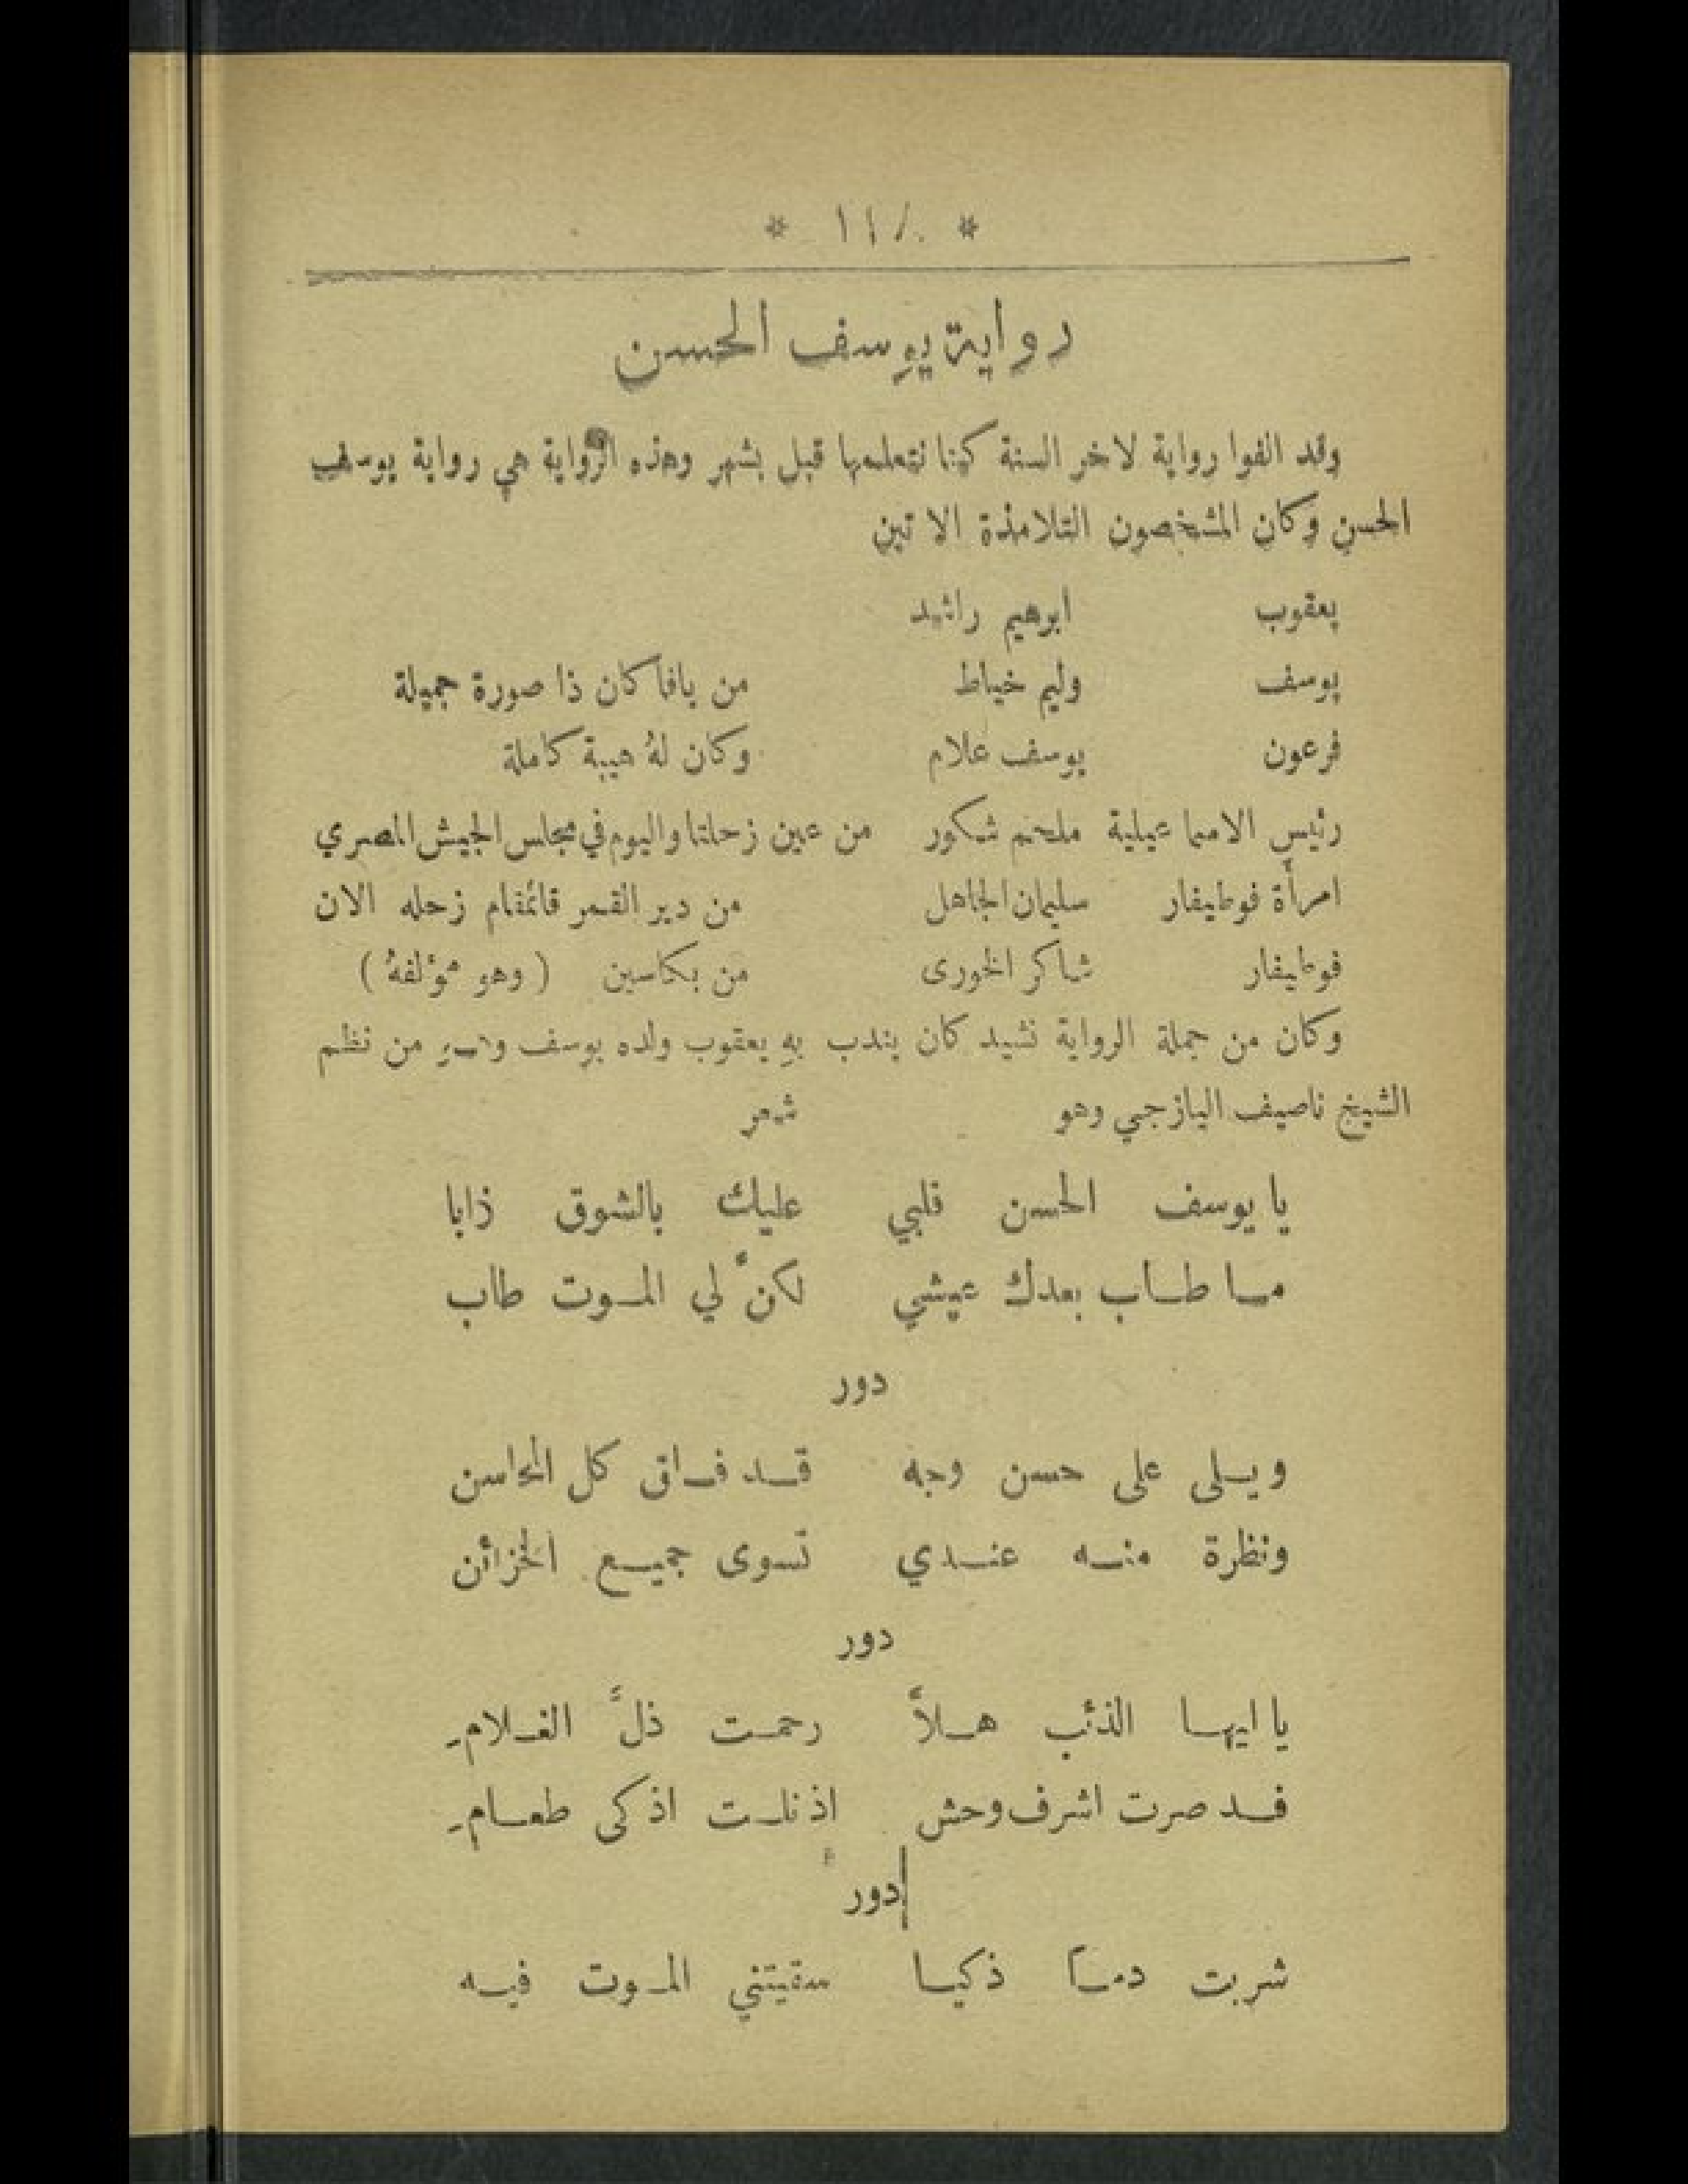 رواية يوسف الحسن
وقد الفوا رواية لاخر السنة كنا نتعلمها قبل بشهر وهذه الرواية هي رواية يوسف
الحسن وكان المشخصون التلامذة الاتين
يعقوب ابرهيم راشد
يوسف وليم خياط من يافا كان ذا صورة جميلة
فرعون يوسف علام وكان لهُ هيبة كاملة
رئيس الاسماعيلية ملحم شكور من عين زحلتا واليوم في مجلس الجيش المصري
امرأة فوطيفار سليمان الجاهل من دير القمر قائمقام زحله الان
فوطيفار شاكر الخورى من بكاسين ( وهو مؤلفهُ )
وكان من جملة الرواية نشيد كان يندب بهِ يعقوب ولده يوسف من نظم
الشيخ ناصيف اليازجي وهو شعر
يا يوسف الحسن قلبي عليك بالشوق ذابا
مـا طـاب بعدك عيشي لكنَّ لي المـوت طاب
دور
ويـلى على حسن وجه قـد فـاق كل المحاسن
ونظرة منـه عنـدي تسوى جميـع الخزائن
دور
يا ايهـا الذئب هـلاَّ رحمـت ذلَّ الغـلام
قـد صرت اشرف وحش اذ نلـت اذكى طعـام
دور
شربت دمـاً ذكيـا سقيتني المـوت فيـه